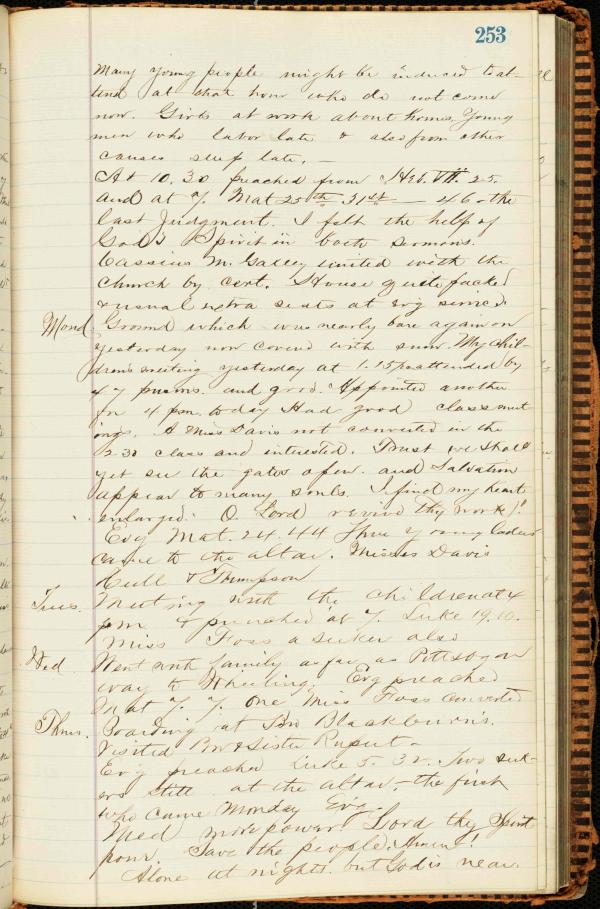 253
many young people might be induced to at-
tend at that hour who do not come
now. Girls at work about homes, Young
men who labor late & also from other
causes sleep late. —
At 10.30 preached from Heb. VII. 25.
and at 7. Mat 25th 31st — 46 - the
last Judgment. I felt the help of
God's Spirit in both sermons.
Cassius M. united with the
Church by cert. House quite packed
& usual extra seats at Evg service.
Mond. Ground which was nearly bare again on
yesterday now covered with snow. My chil-
drens meeting yesterday at 1.15 pm attended by
47 persons. and good. Appointed another
for 4 pm. today Had good class meet
ings. A Miss Davis not converted in the
2.30 class and interested. Trust we shall
yet see the gates open. and Salvation
appear to many souls. I find my heart
enlarged. O. Lord revive thy work!!
Evg Mat. 24.44 Three young ladies
came to the altar. Misses Davis
Hull & Thompson
Tues. Meeting with the children at 4
pm & preached at 7. Luke 19.10.
Miss Foss a seeker also
Wed. Went with family as far as Pittsb'g on
way to Wheeling. Evg preached
Mat 7. 7. One Miss Foss converted
Thurs. Boarding at Bro Blackburn's.
Visited Bro & Sister Rupert -
Evg preached Luke 5. 32. Two seek-
ers still at the altar, - the first
who came Monday Evg.
Need more power. Lord thy Spirit
pour. Save the people. Amen!
Alone at nights. but God is near.